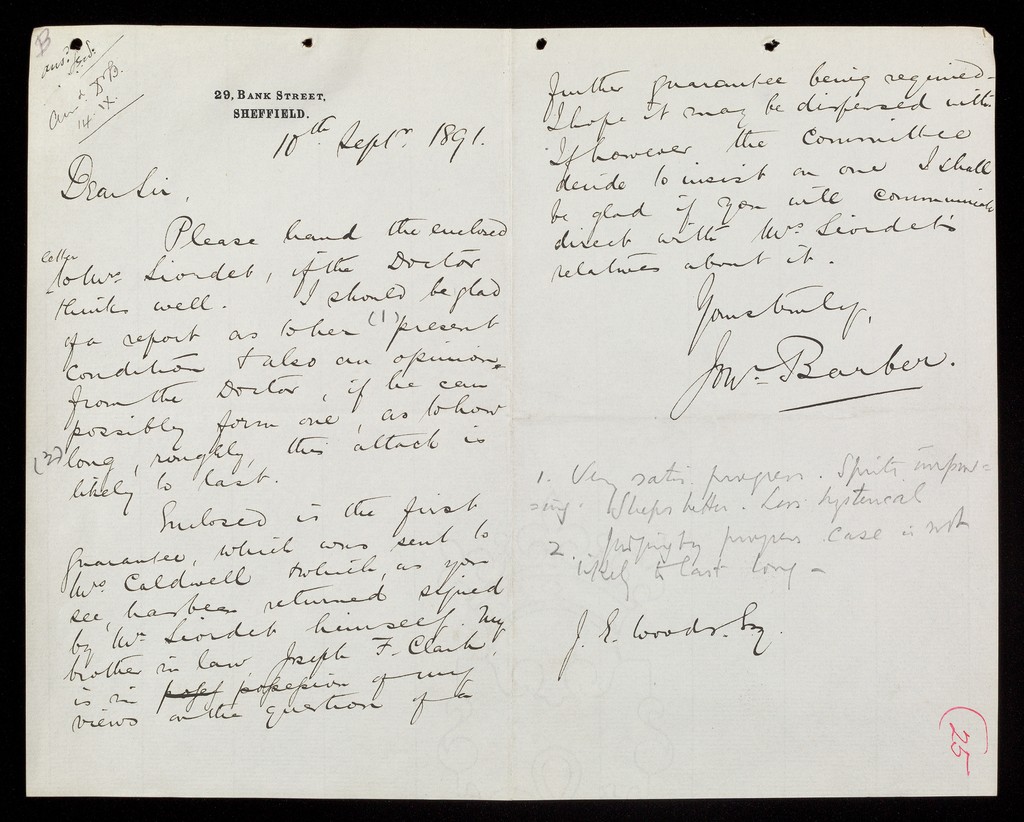 B
ansd.
14. IX.
29, BANK STREET,
SHEFFIELD.
10th Septr. 1891.
Dear Sir,
Please hand the enclosed
letter
to Mrs. Liordet, if the Doctor
thinks well. I should be glad
of a report as to her (1) present
condition & also an opinion
from the Doctor, if he can
possibly form one, as to how
(2) long, roughly, this attack is
likely to last.
Enclosed is the first
Guarantee, which was sent to
Mrs. Caldwell & which, as you
see, has been returned signed
by Mr. Liordet himself. My
brother in law Joseph F. Clark,
is in possession of my
views on the question of a
further guarantee being required -
I hope it may be dispensed with.
If however the Committee
decide to insist on one I shall
be glad if you will communicate
direct with Mrs. Liordet's
relatives about it.
Yours truly,
Barber.
1. Very satis. progress. Spirits improv=
=ing. Sleeps better. Less hysterical
2. Judging by progress case is not
likely to last long -
J. E. Woods. Esq.
(25